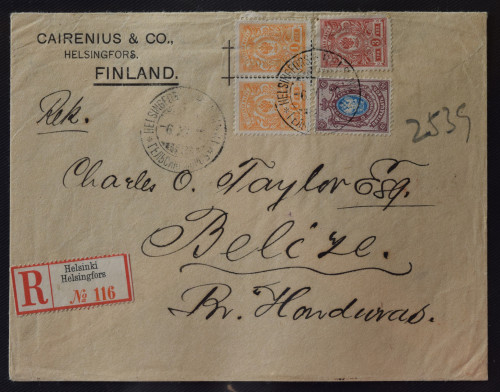 CAIRENIUS & CO.,
HELSINGFORS.
FINLAND.
Rek.
HELSINGFORS
2539
Charles O. Taylor Esq.
Belize.
Br. Honduras.
R
Helsinki
Helsingfors
№ 116